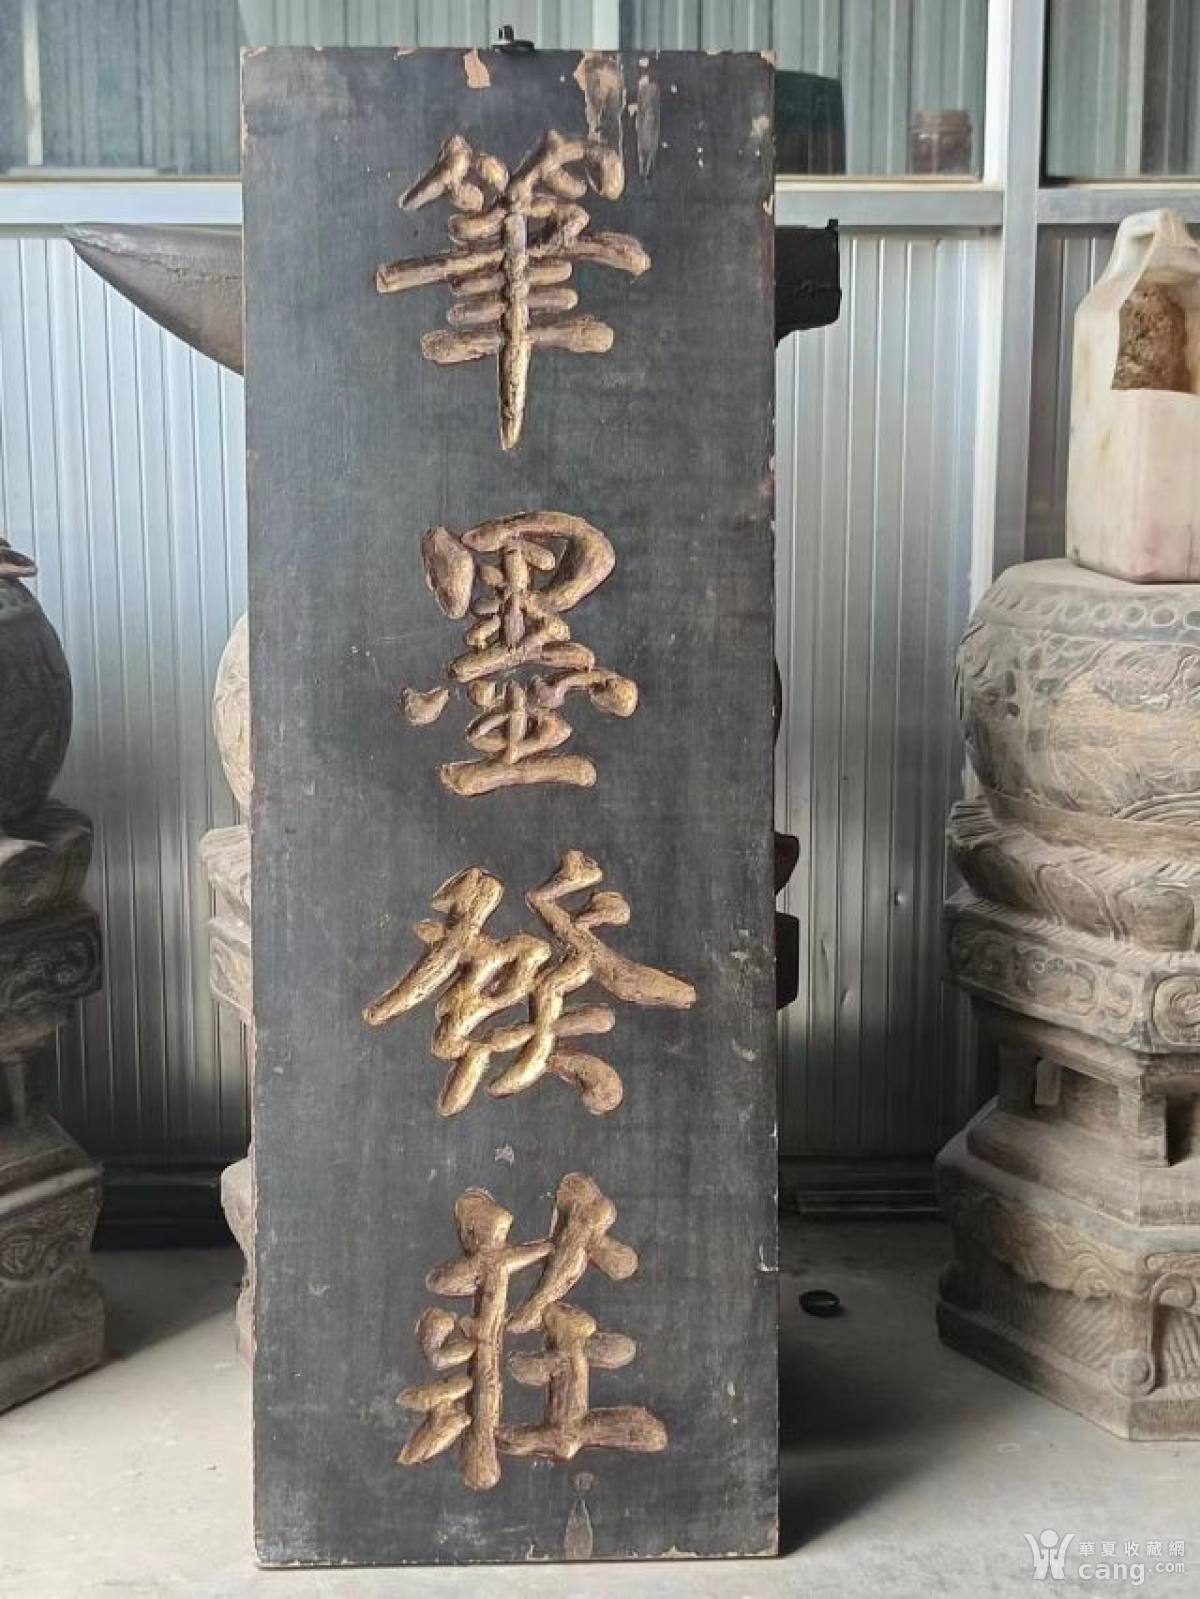 筆墨發莊
華夏收藏網
cang.com